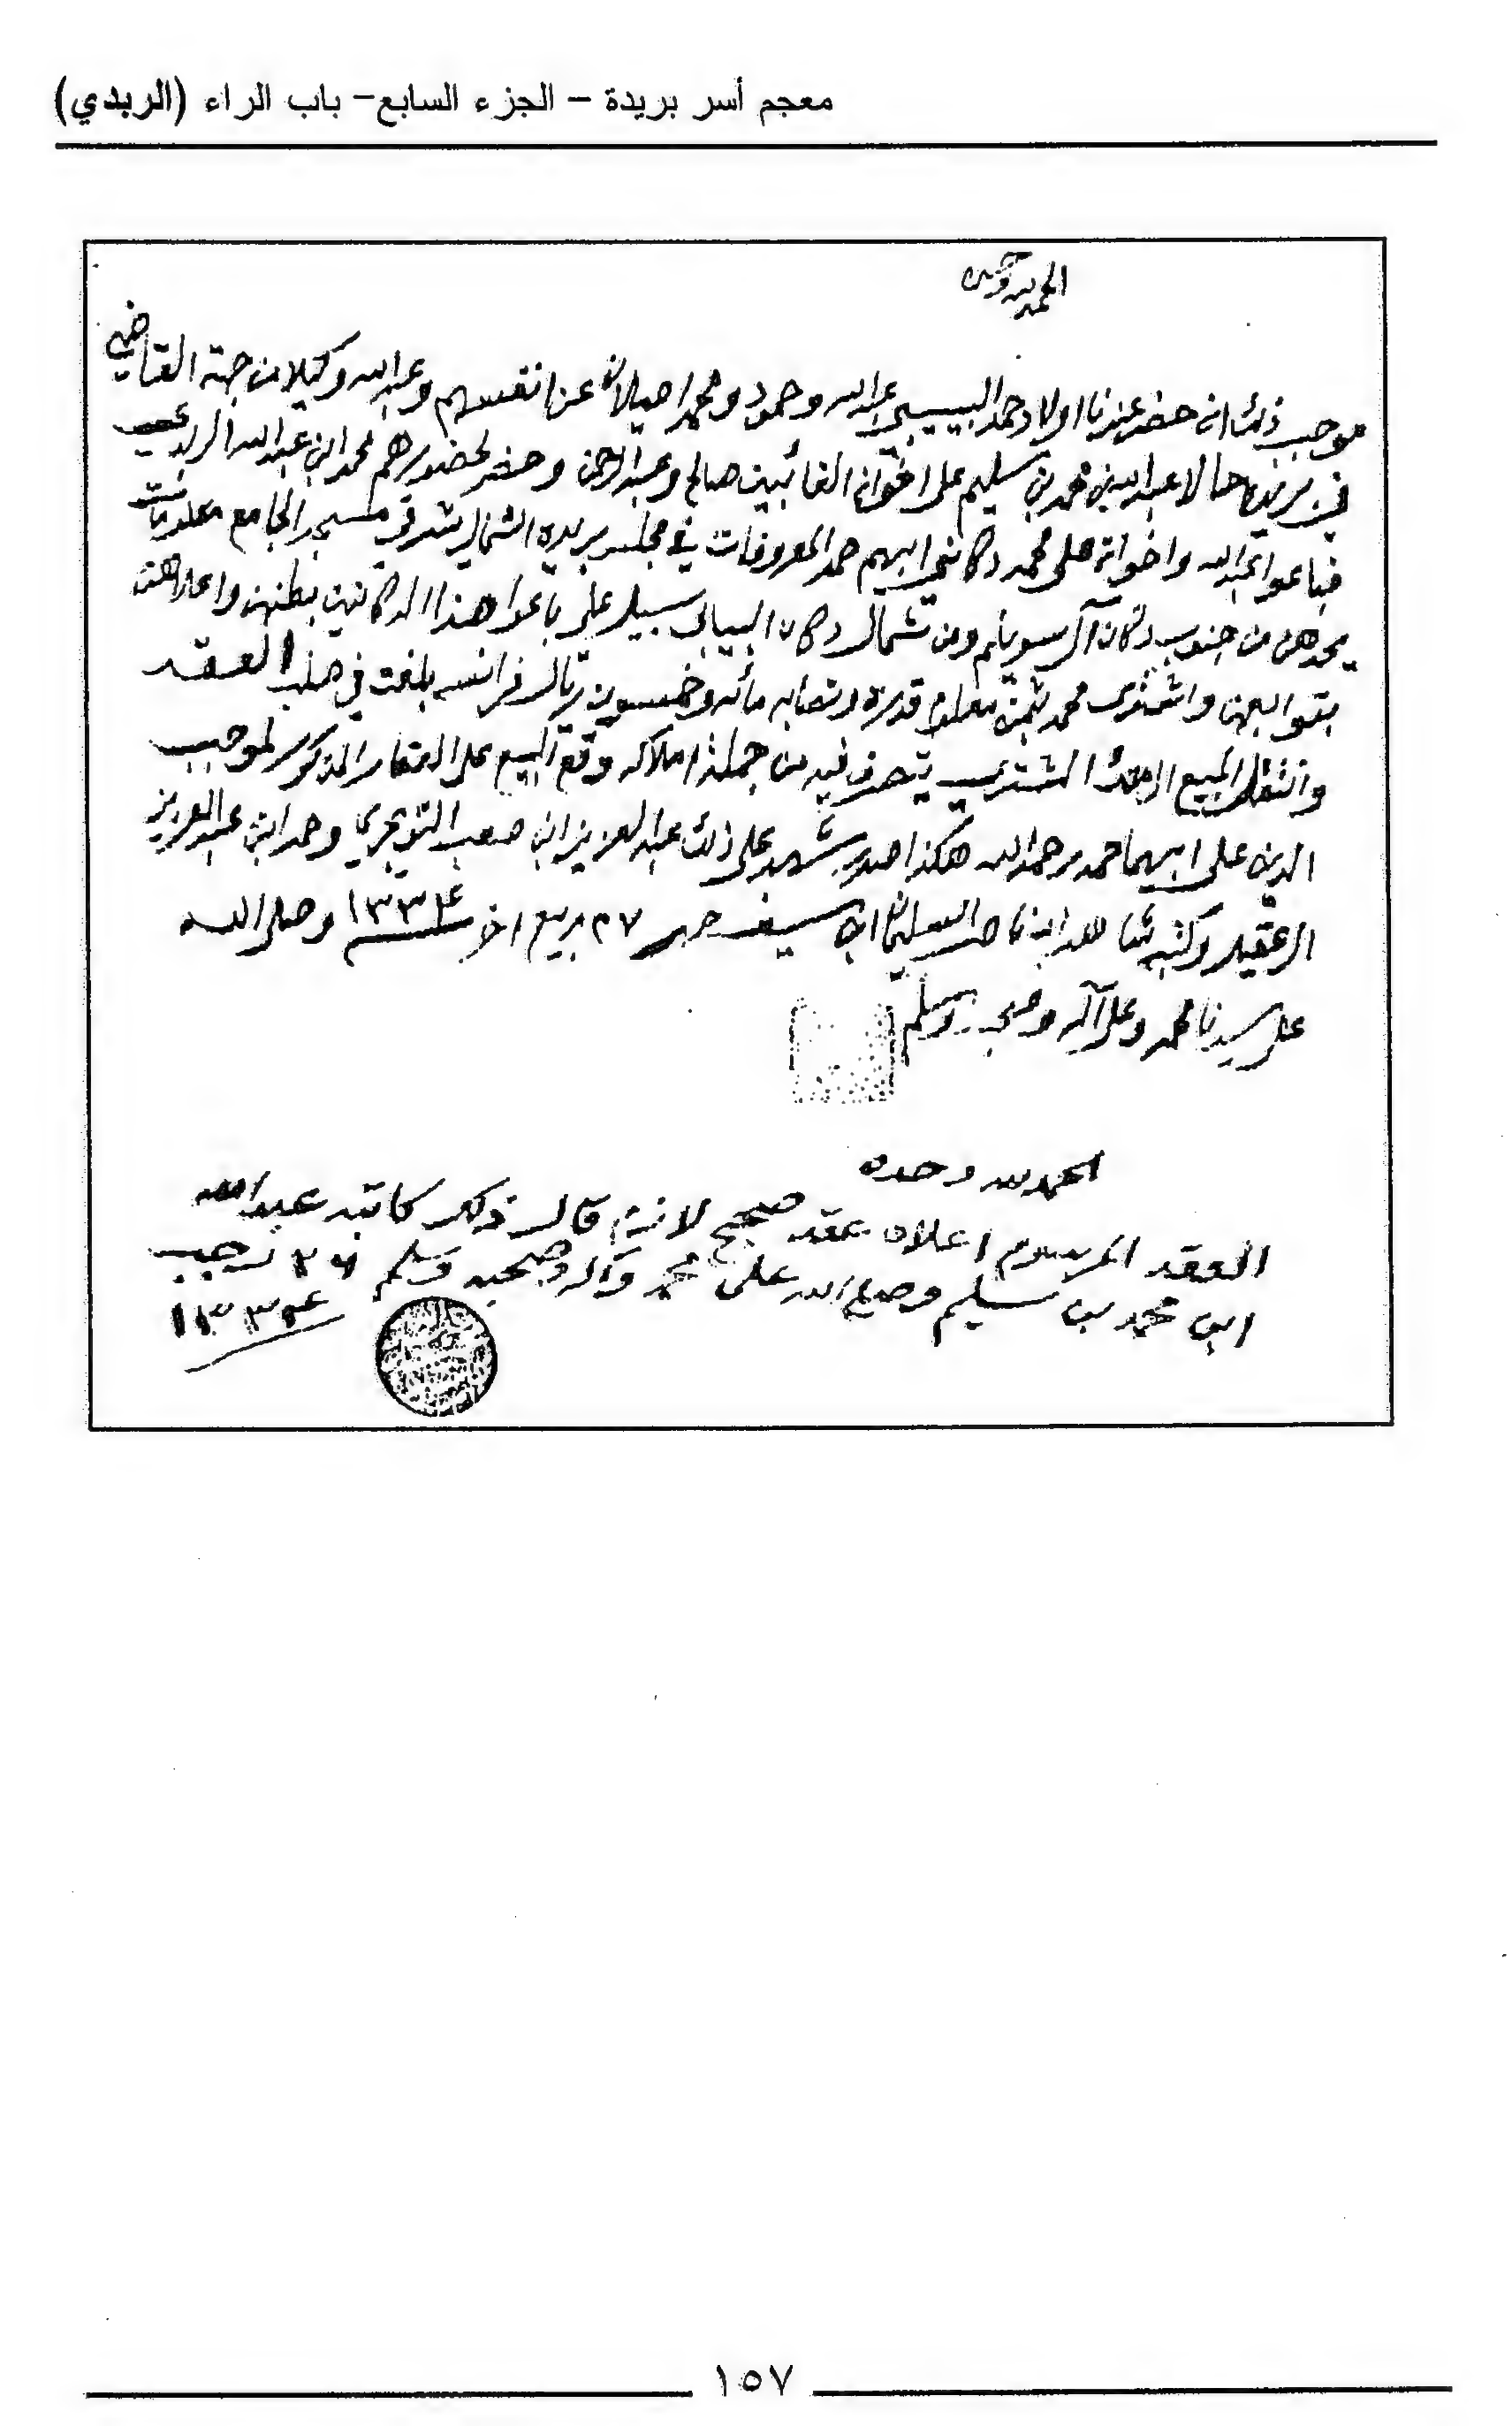 معجم أسر بريدة – الجزء السابع– باب الراء (الربدي)
الحمد لله وحده
موجب ذلك انه حضر عندنا اولاد حمد البييبي عبدالله وحمود ومحمد اصيلان عن انفسهم وعبدالله وكيلا من جهة القاضي
في بريده حالا عبدالله بن محمد بن سليم على اخوانه الغائبين صالح وعبدالرحمن وحضر لحضورهم محمد ابن عبدالله الربدي
فباعوا عبدالله واخوانه على محمد دكاكين ابيهم حمد المعروفات في مجلس بريده الشمالي شرقي مسجد الجامع معلومات
يحدهن من جنوب دكان آل سويلم ومن شمال دكان سبيل على باعوا هذا الدكانين بطنهن واعلاهن
بتوابعهن واشترى محمد بثمن معلوم قدره ونصابه مائه وخمسون ريال فرانسه بلغت في صلب العقد
وانتقل المبيع الى المشتري يتصرف فيه من جملة املاكه وقع البيع على العقار المذكور لموجب
الدين على ابيهما حمد رحمه الله هكذا صدر شهد على ذلك عبدالعزيز ابن صعب التويجري وحمد ابن عبدالعزيز
العقيل وكتبه شاهد ابن ناصر السليمان ابن سيف حرر ٢٧ ربيع اخر سنة ١٣٣٤ وصلى الله
على سيدنا محمد وعلى آله وصحبه وسلم
الحمد لله وحده
العقد المرسوم اعلاه عقد صحيح لازم قال ذلك كاتبه عبدالله
ابن محمد بن سليم وصلى الله على محمد وآله وصحبه وسلم ٢٦ رجب
١٣٣٤
١٥٧